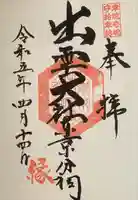 奉拝
出雲大社京分祠
令和五年四月十四日
縁